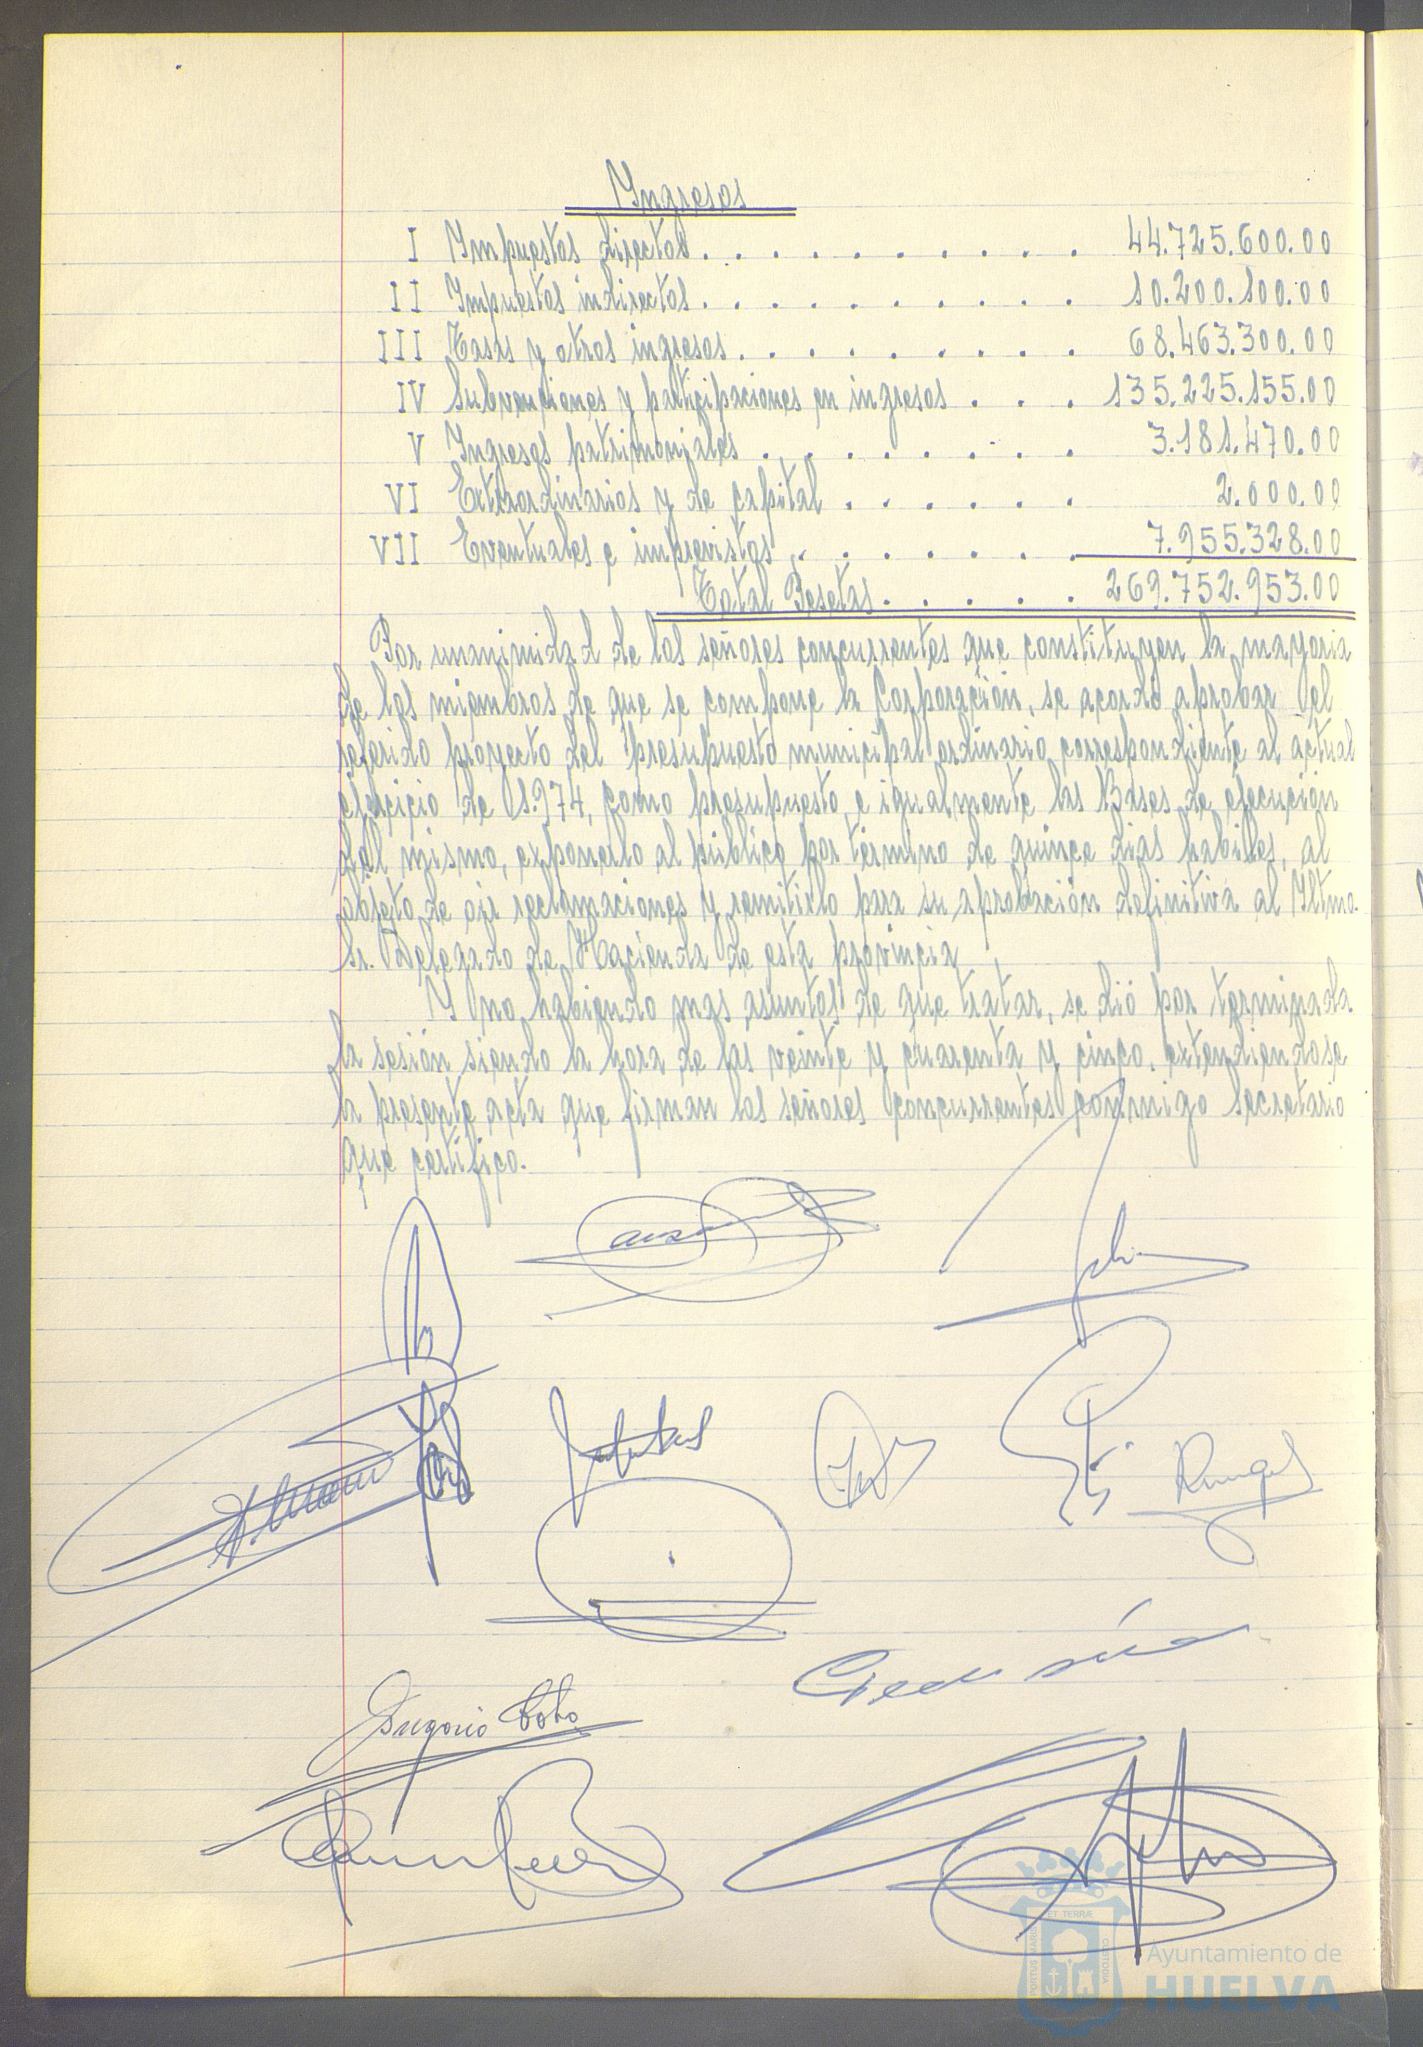 Ingresos
I Impuestos directos . . . . . . . . . . . 44.725.600.00
II Impuestos indirectos . . . . . . . . . . . 10.200.100.00
III Tasas y otros ingresos . . . . . . . . . . 68.463.300.00
IV Subvenciones y participaciones en ingresos . . . 135.225.155.00
V Ingresos patrimoniales . . . . . . . . . 3.181.470.00
VI Extraordinarios y de capital . . . . . . 2.000.00
VII Eventuales e imprevistos . . . . . . . . 7.955.328.00
Total Pesetas . . . . . . 269.752.953.00
Por unanimidad de los señores concurrentes que constituyen la mayoria
de los miembros de que se compone la Corporación, se acordó aprobar el
referido proyecto del presupuesto municipal ordinario correspondiente al actual
ejercicio de 1.974, como presupuesto, e igualmente las Bases de ejecución
del mismo, exponerlo al público por término de quince dias habiles, al
objeto de oir reclamaciones y remitirlo para su aprobación definitiva al Iltmo.
Sr. Delegado de Hacienda de esta provincia
Y no habiendo mas asuntos de que tratar, se dió por terminada
la sesión siendo la hora de las veinte y cuarenta y cinco, extendiendose
la presente acta que firman los señores concurrentes conmigo Secretario
que certifico.
Rangel
Gregorio Toto
PORTUS MARIS ET TERRÆ CUSTODIA
Ayuntamiento de
HUELVA